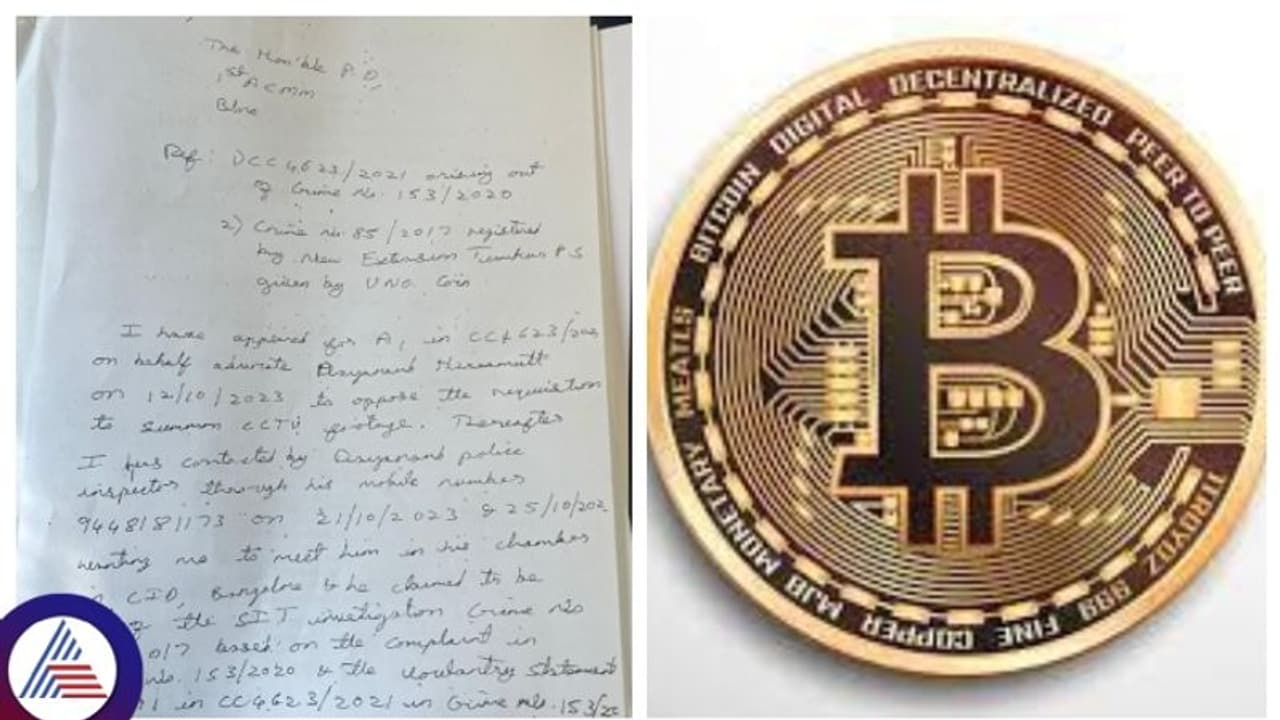 The Hon'ble P.O,
1st ACMM
Blore
Ref: DCC 4623/2021 arising out
of Crime No. 153/2020
2) Crime no. 85/2017 registered
by New Extension Tumkur P.S
given by UNO Coin
I have appeared for A1 in CC4623/202
on behalf advocate
on 12/10/2023 to oppose the requisition
to summon CCTV footage. Thereafter
I was contacted by police
inspector through his mobile number
9448181173 on 21/10/2023 & 25/10/202
wanting me to meet him in his chamber
CID, Bangalore & he claimed to be
the SIT investigation Crime no
017 based on the complaint in
no. 153/2020 & the voluntary statement
in CC4623/2021 in Crime no. 153/20
BITCOIN DIGITAL DECENTRALIZED PEER TO PEER
MJB MONETARY MEATLS
1TROYOZ 999 FINE COPPER